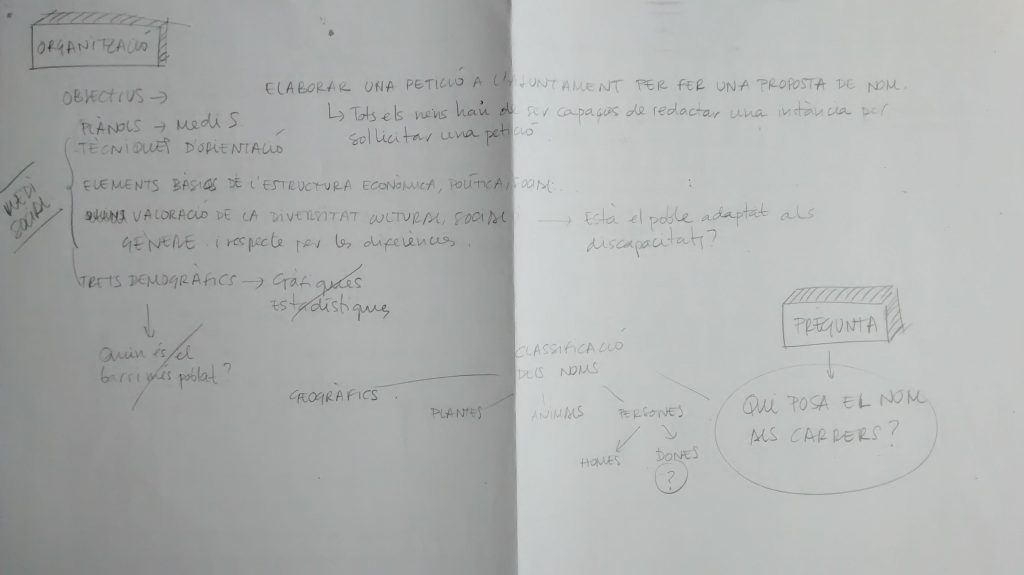 ORGANITZACIÓ
OBJECTIUS → ELABORAR UNA PETICIÓ A L'AJUNTAMENT PER FER UNA PROPOSTA DE NOM.
↳ Tots els nens han de ser capaços de redactar una intància per
sol·licitar una petició
PLÀNOLS → Medi S.
TÈCNIQUES D'ORIENTACIÓ
MEDI
SOCIAL
ELEMENTS BÀSICS DE L'ESTRUCTURA ECONÒMICA, POLÍTICA, SOCIAL.
VALORACIÓ DE LA DIVERSITAT CULTURAL, SOCIAL → Està el poble adaptat als
GÈNERE i respecte per les diferències. discapacitats?
TRETS DEMOGRÀFICS → Gràfiques
Estadístiques
Quin és el
barri més poblat?
PREGUNTA
QUI POSA EL NOM
ALS CARRERS?
CLASSIFICACIÓ
DELS NOMS
GEOGRÀFICS.
PLANTES
ANIMALS
PERSONES
HOMES
DONES
?